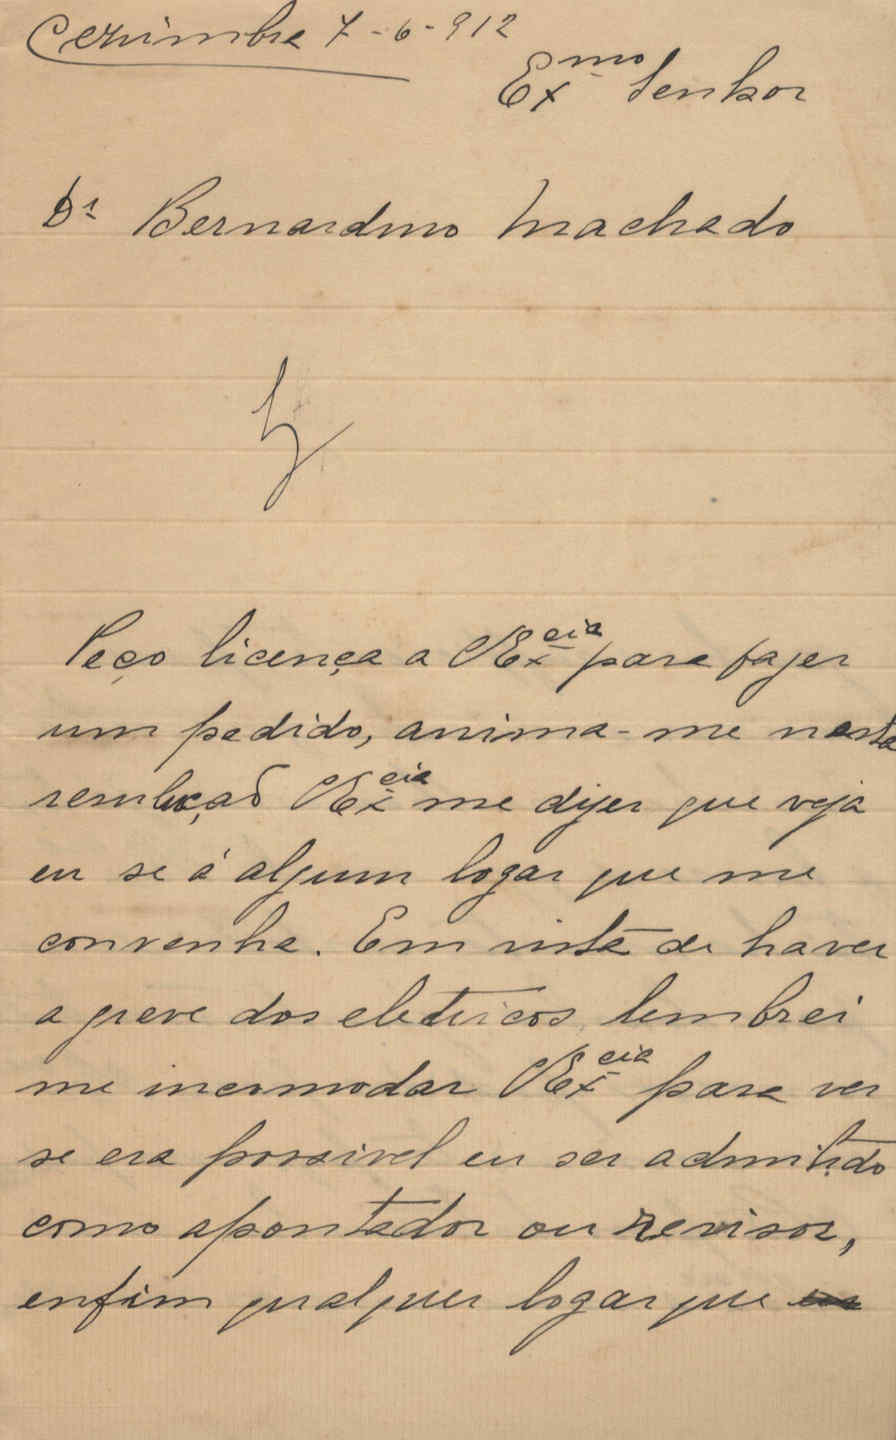 Cezimbra 7-6-912
Exmo Senhor
Dr Bernardino Machado
Peço licença a VExcia para fazer
um pedido, anima-me nesta
resulução VExcia me dizer que veja
eu se á algum logar que me
convenha. Em vista de haver
a greve dos eletricos, lembrei
me incomodar VExcia para ver
se era possivel eu ser admitido
como apontador ou revisor,
enfim qualquer logar que